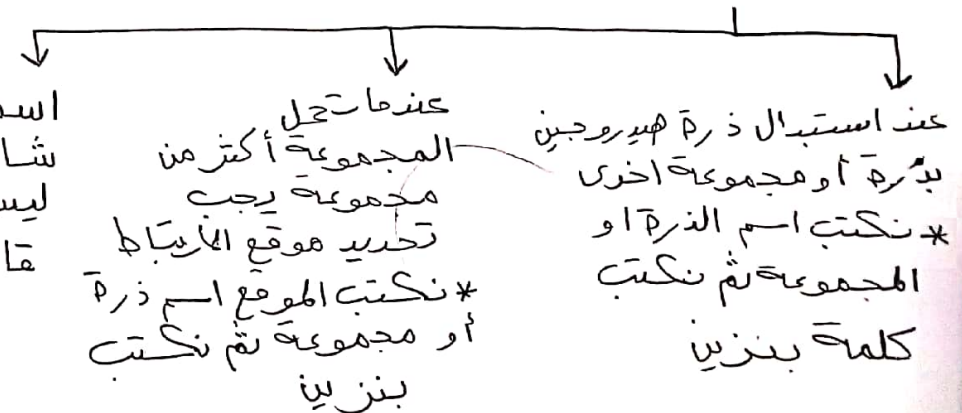 عند استبدال ذرة هيدروجين
بذرة أو مجموعة اخرى
* نكتب اسم الذرة او
المجموعة ثم نكتب
كلمة بنزين
عندما تحل
المجموعة أكثر من
مجموعة يجب
تحديد موقع الارتباط
* نكتب الموقع اسم ذرة
أو مجموعة ثم نكتب
بنزين